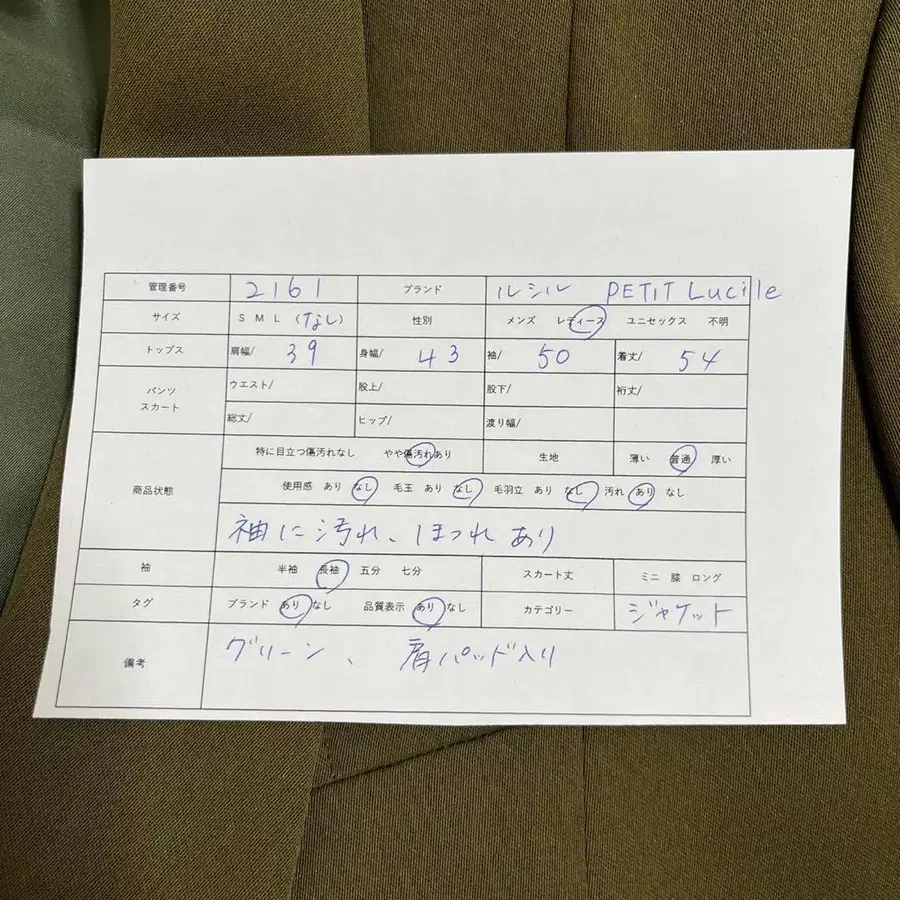 管理番号 2161 ブランド ルシル PETIT Lucile
サイズ S M L (なし) 性別 メンズ レディース ユニセックス 不明
トップス 肩幅/ 39 身幅/ 43 袖/ 50 着丈/ 54
パンツ スカート ウエスト/ 股上/ 股下/ 裄丈/
総丈/ ヒップ/ 渡り幅/
商品状態 特に目立つ傷汚れなし やや傷汚れあり 生地 薄い 普通 厚い
使用感 あり なし 毛玉 あり なし 毛羽立 あり なし 汚れ あり なし
袖に汚れ、ほつれあり
袖 半袖 長袖 五分 七分 スカート丈 ミニ 膝 ロング
タグ ブランド あり なし 品質表示 あり なし カテゴリー ジャケット
備考 グリーン、肩パッド入り